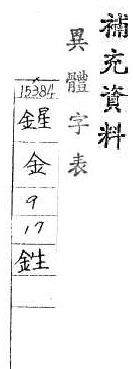 補充資料
異體字表
15384
鍟
金
9
17
鉎